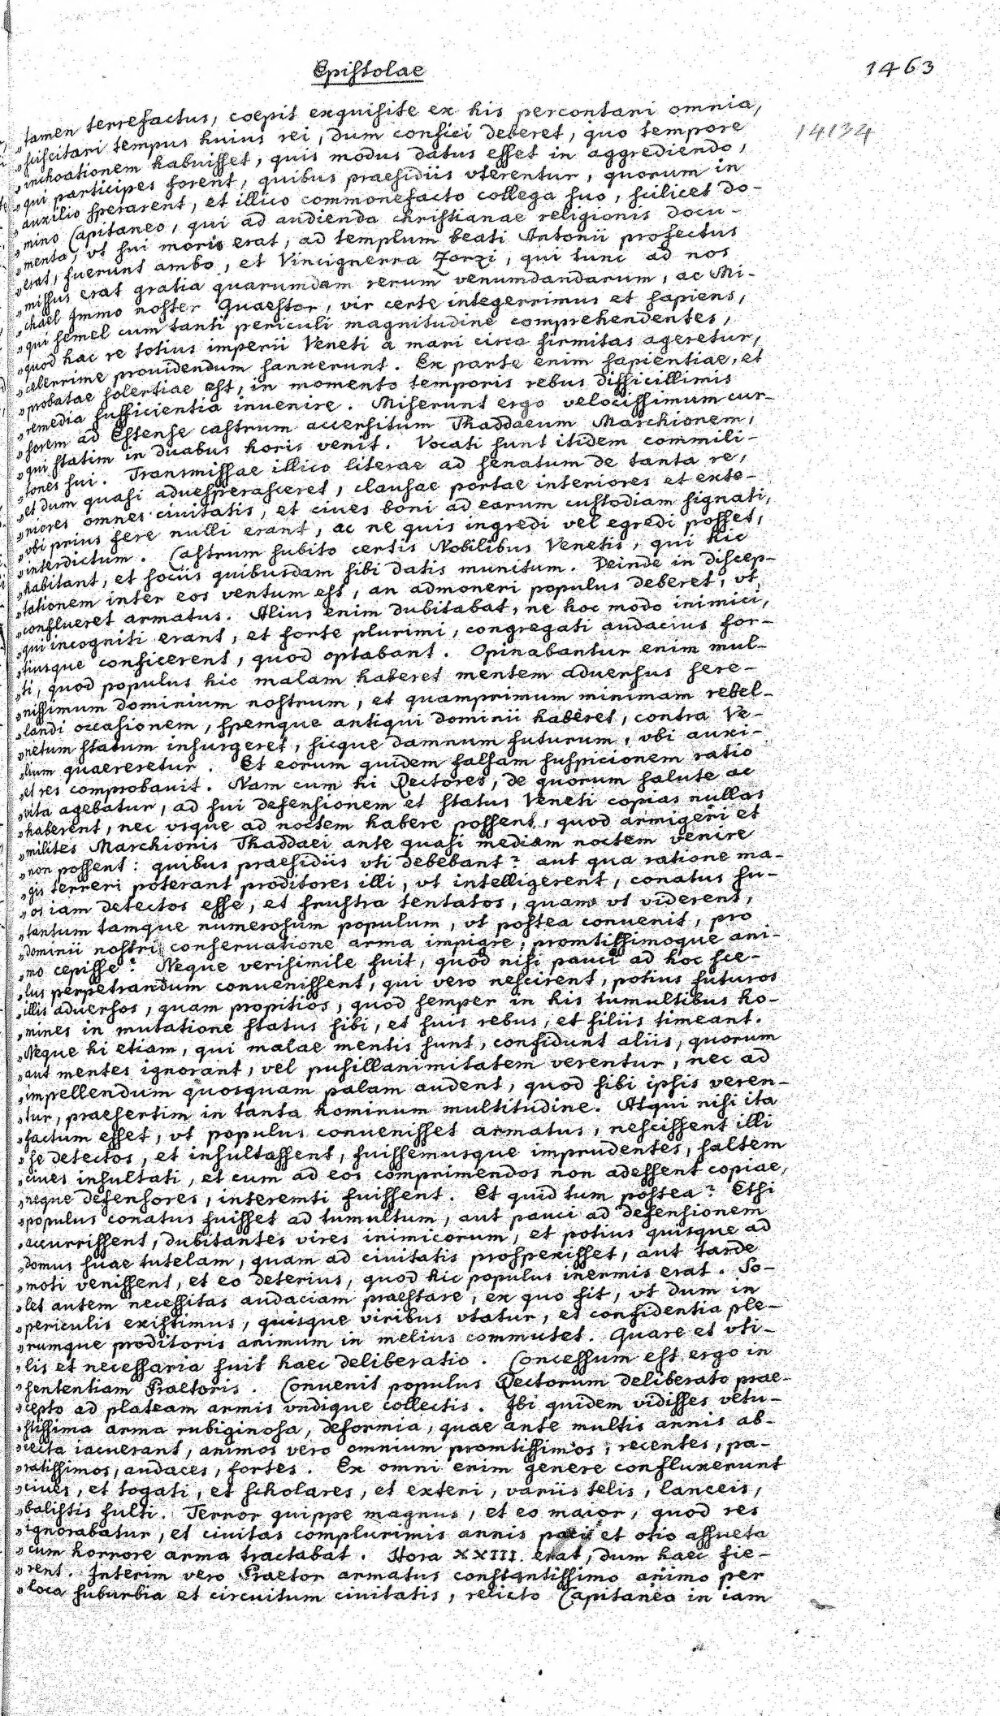 Epistolae
1463
14134
„tamen terrefactus, coepit exquisite ex his percontari omnia,
„suscitari tempus huius rei, dum confici deberet, quo tempore
„inchoationem habuisset, quis modus datus esset in aggrediendo,
„qui participes forent, quibus praesidiis vterentur, quorum in
„auxilio sperarent, et illico commonefacto collega suo, scilicet do-
„mino Capitaneo, qui ad audienda christianae religionis docu-
„menta, vt sui moris erat, ad templum beati Antonii profectus
„erat, fuerunt ambo, et Vincignerra Zorzi, qui tunc ad nos
„missus erat gratia quarumdam rerum venumdandarum, ac Mi-
„chael Immo noster Quaestor, vir certe integerrimus et sapiens,
„qui semel cum tanti periculi magnitudine comprehendentes,
„quod hac re totius imperii Veneti a mari circa firmitas ageretur,
„celerrime prouidendum sanxerunt. Ex parte enim sapientiae, et
„probatae solertiae est, in momento temporis rebus difficillimis
„remedia sufficientia inuenire. Miserunt ergo velocissimum cur-
„sorem ad Essense castrum accersitum Thaddaeum Marchionem,
„qui statim in duabus horis venit. Vocati sunt itidem commili-
„tones sui. Transmissae illico literae ad senatum de tanta re,
„et dum quasi aduesperasceret, clausae portae interiores et exte-
„riores omnes ciuitatis, et ciues boni ad earum custodiam signati,
„vbi prius fere nulli erant, ac ne quis ingredi vel egredi posset,
„interdictum. Castrum subito certis Nobilibus Venetis, qui hic
„habitant, et sociis quibusdam sibi datis munitum. Deinde in discep-
„tationem inter eos ventum est, an admoneri populus deberet, vt
„conflueret armatus. Alius enim dubitabat, ne hoc modo inimici,
„qui incogniti erant, et forte plurimi, congregati audacius for-
„tiusque conficerent, quod optabant. Opinabantur enim mul-
„ti, quod populus hic malam haberet mentem aduersus sere-
„nissimum dominium nostrum, et quamprimum minimam rebel-
„landi occasionem, spemque antiqui dominii haberet, contra Ve-
„netum statum insurgeret, sicque damnum futurum, vbi auxi-
„lium quaereretur. Et eorum quidem falsam suspicionem ratio
„et res comprobauit. Nam cum hi Rectores, de quorum salute ac
„vita agebatur, ad sui defensionem et status Veneti copias nullas
„haberent, nec vsque ad noctem habere possent, quod armigeri et
„milites Marchionis Thaddaei ante quasi mediam noctem venire
„non possent: quibus praesidiis vti debebant? aut qua ratione ma-
„gis terreri poterant proditores illi, vt intelligerent, conatus su-
„os iam detectos esse, et frustra tentatos, quam vt viderent,
„tantum tamque numerosum populum, vt postea conuenit, pro
„dominii nostri conseruatione arma impigre, promtissimoque ani-
„mo cepisse? Neque verisimile fuit, quod nisi pauci ad hoc sce-
„lus perpetrandum conuenissent, qui vero nescirent, potius futuros
„illis aduersos, quam propitios, quod semper in his tumultibus ho-
„mines in mutatione status sibi, et suis rebus, et filiis timeant.
„Neque hi etiam, qui malae mentis sunt, confidunt aliis, quorum
„aut mentes ignorant, vel pusillanimitatem verentur, nec ad
„impellendum quosquam palam audent, quod sibi ipsis veren-
„tur, praesertim in tanta hominum multitudine. Atqui nisi ita
„factum esset, vt populus conuenisset armatus, nescissent illi
„se detectos, et insultassent, fuissemusque imprudentes, saltem
„ciues insultati, et cum ad eos comprimendos non adessent copiae,
„neque defensores, interemti fuissent. Et quid tum postea? Etsi
„populus conatus fuisset ad tumultum, aut pauci ad defensionem
„accurrissent, dubitantes vires inimicorum, et potius quisque ad
„domus suae tutelam, quam ad ciuitatis prospexisset, aut tarde
„moti venissent, et eo deterius, quod hic populus inermis erat. So-
„let autem necessitas audaciam praestare, ex quo fit, vt dum in
„periculis existimus, quisque viribus vtatur, et confidentia ple-
„rumque proditoris animum in melius commutet. Quare et vti-
„lis et necessaria fuit haec deliberatio. Concessum est ergo in
„sententiam Praetoris. Conuenit populus Rectorum deliberato prae-
„cepto ad plateam armis vndique collectis. Ibi quidem vidisses vetu-
„stissima arma rubiginosa, deformia, quae ante multis annis ab-
„iecta iacuerant, animos vero omnium promtissimos, recentes, pa-
„ratissimos, audaces, fortes. Ex omni enim genere confluxerunt
„ciues, et togati, et scholares, et exteri, variis telis, lanceis,
„balistis fulti. Terror quippe magnus, et eo maior, quod res
„ignorabatur, et ciuitas complurimis annis paci et otio assueta
„cum horrore arma tractabat. Hora XXIII. erat, dum haec fie-
„rent. Interim vero Praetor armatus constantissimo animo per
„loca suburbia et circuitum ciuitatis, relicto Capitaneo in iam